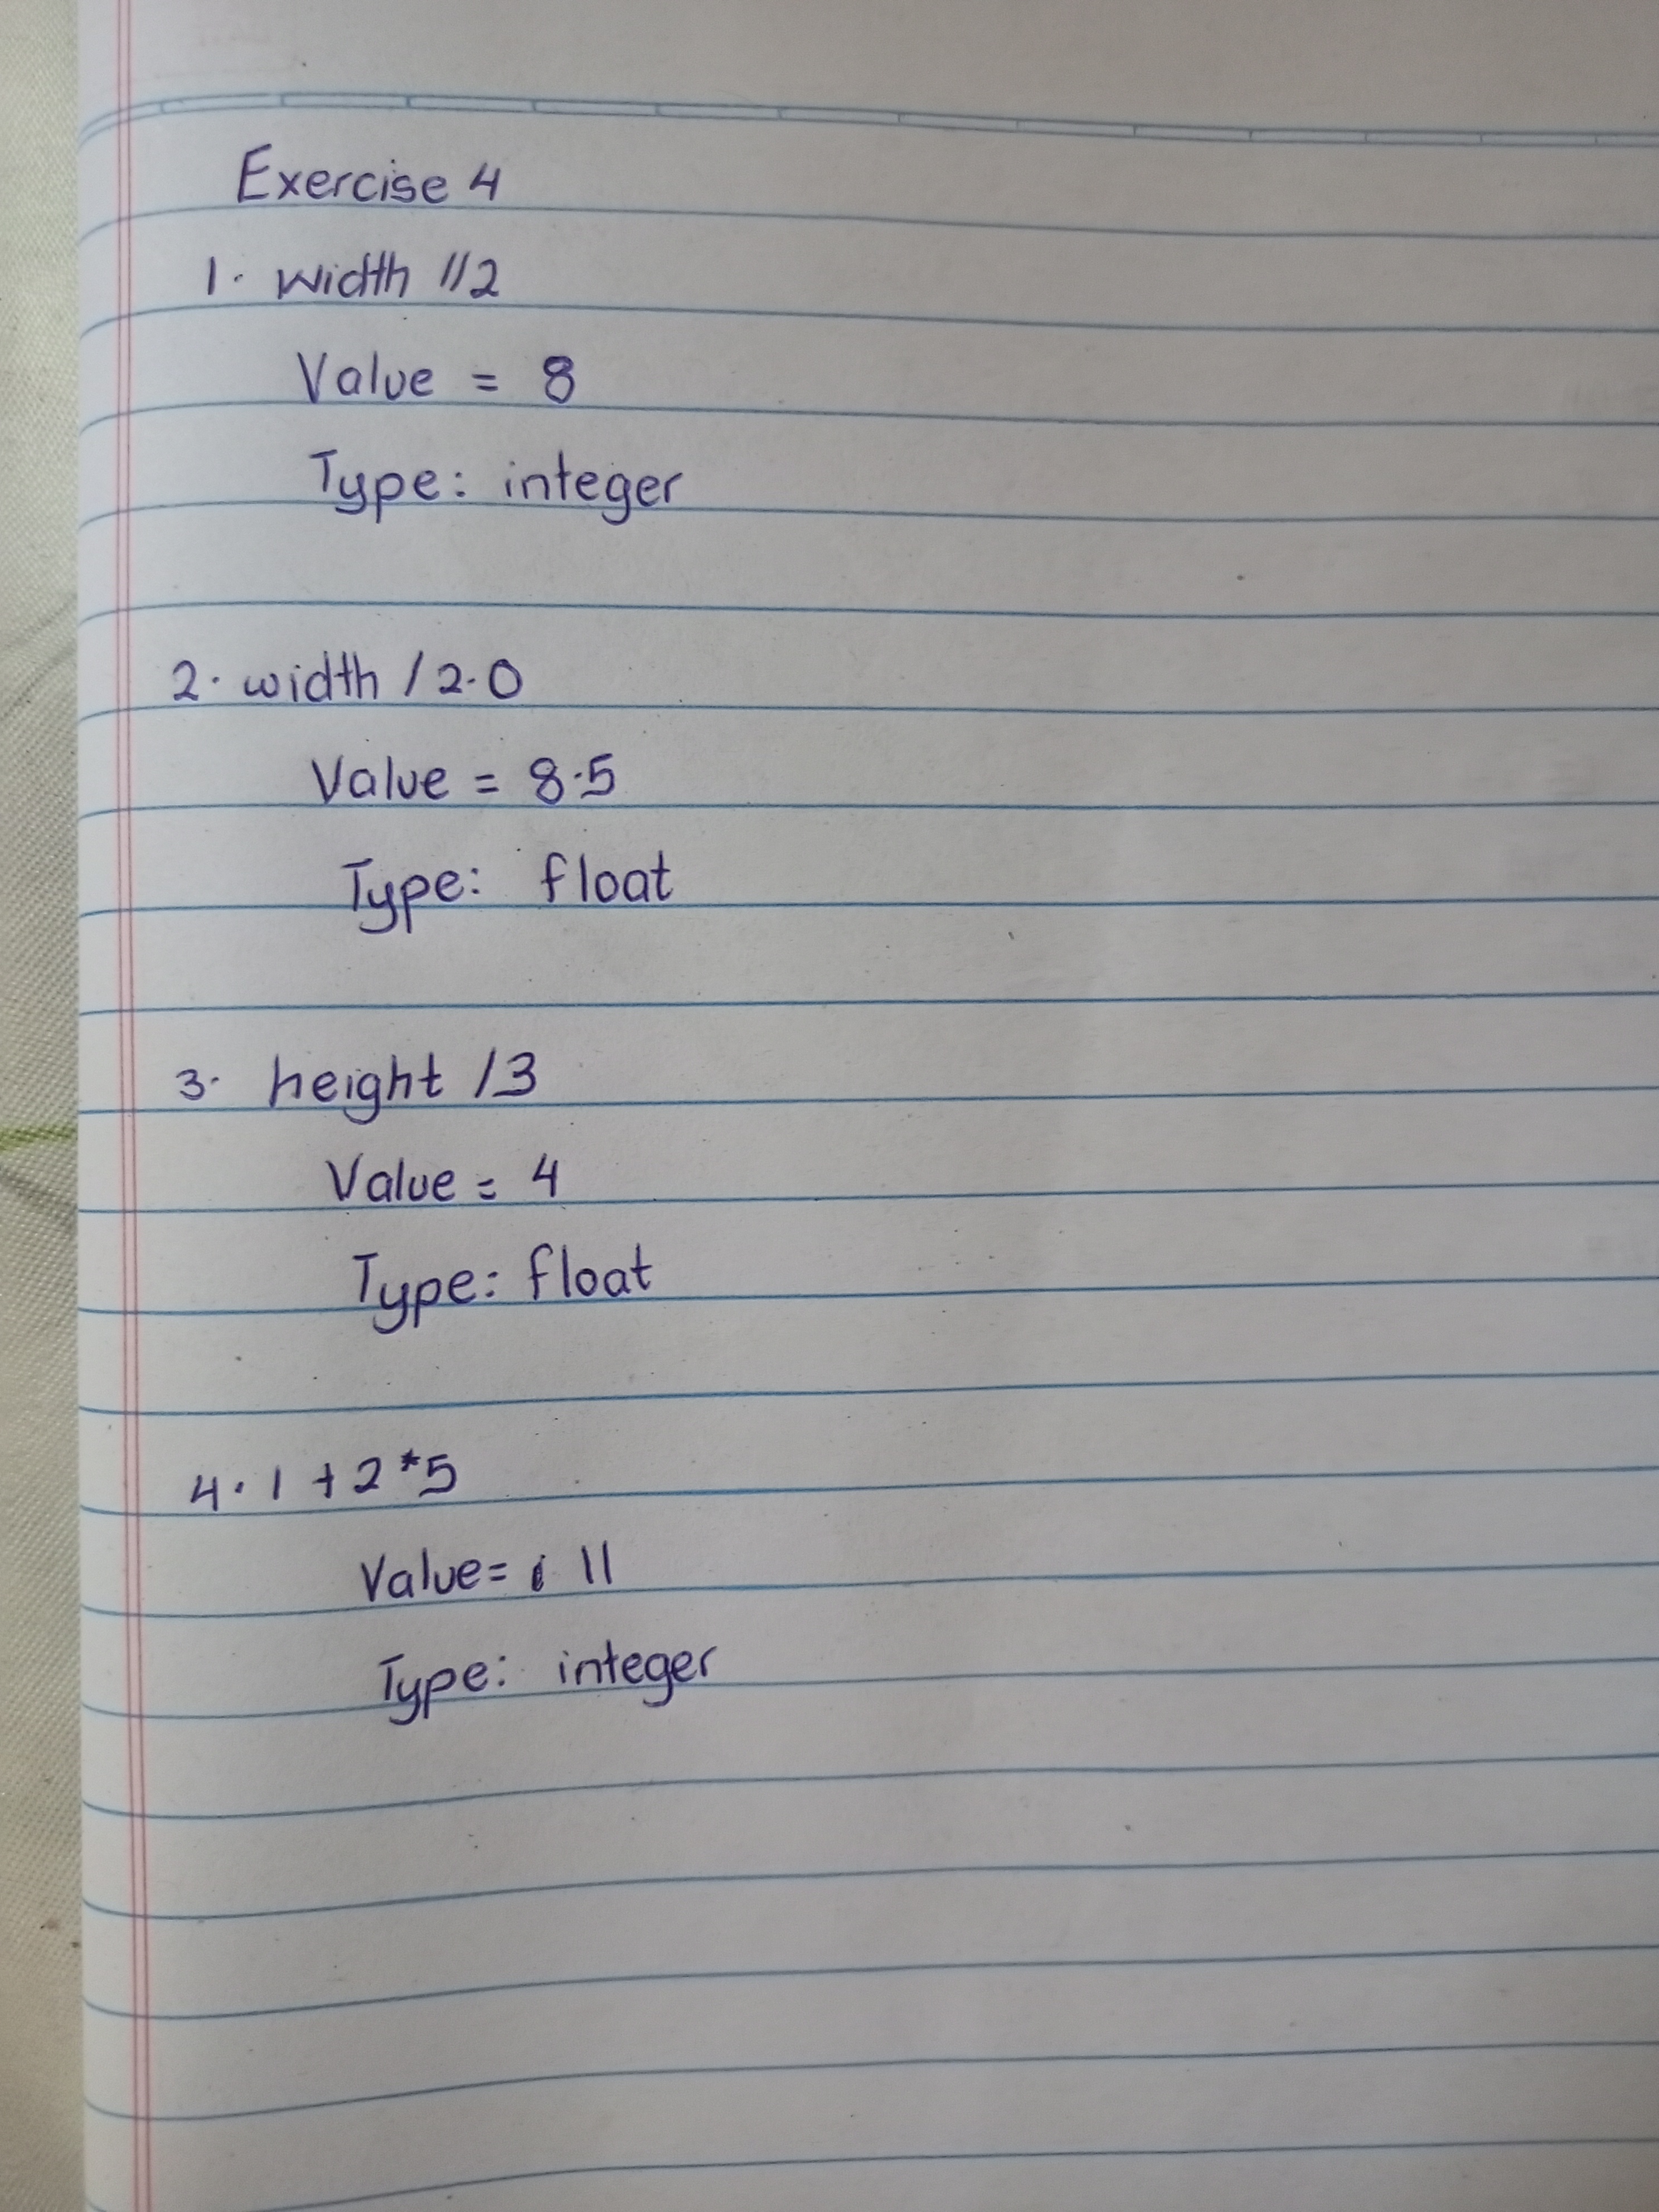 Exercise 4
1. width //2
Value = 8
Type: integer
2. width / 2.0
Value = 8.5
Type: float
3. height /3
Value = 4
Type: float
4. 1 + 2 * 5
Value = 11
Type: integer